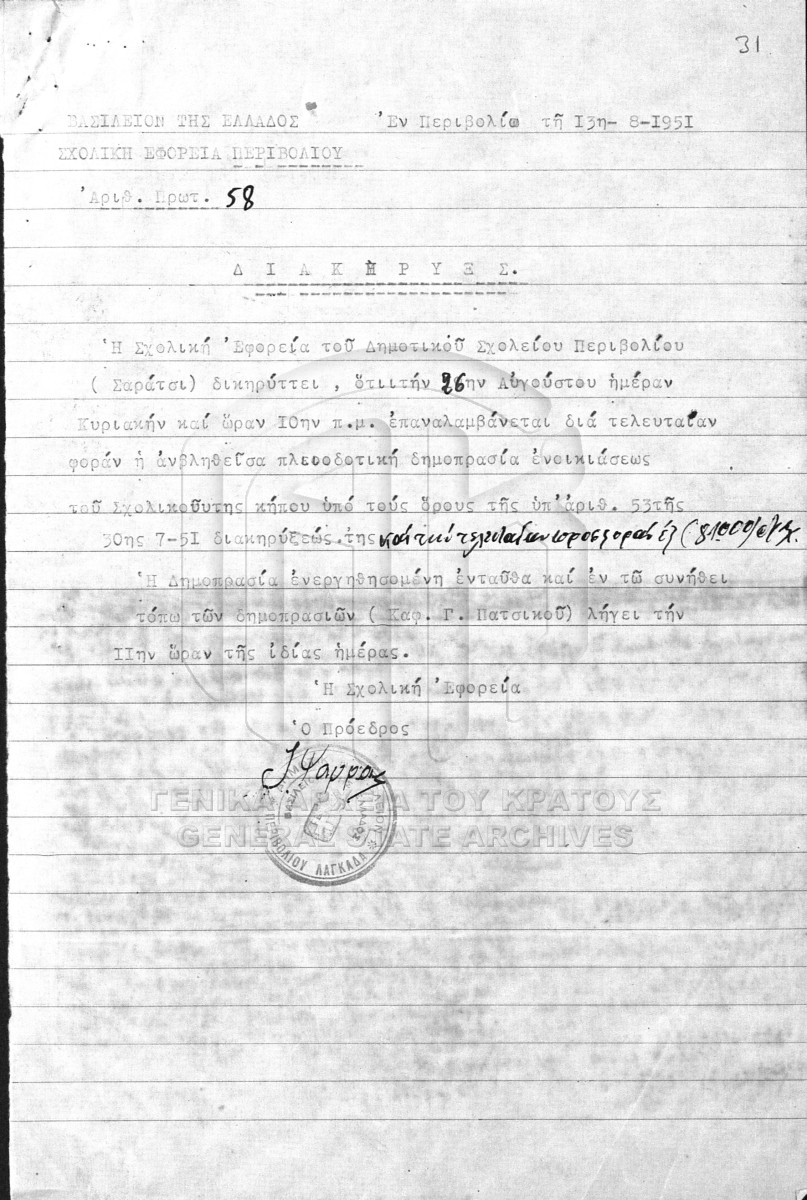 31
ΒΑΣΙΛΕΙΟΝ ΤΗΣ ΕΛΛΑΔΟΣ Ἐν Περιβολίω τῆ 13η- 8-1951
ΣΧΟΛΙΚΗ ΕΦΟΡΕΙΑ ΠΕΡΙΒΟΛΙΟΥ
Ἀριθ. Πρωτ. 58
Δ Ι Α Κ Η Ρ Υ Ξ Σ.
Ἡ Σχολική Ἐφορεία τοῦ Δημοτικοῦ Σχολείου Περιβολίου
( Σαράτσι) δικηρύττει , ὅτιιτήν 26ην Αὐγούστου ἡμέραν
Κυριακήν καί ὥραν 10ην π.μ. ἐπαναλαμβάνεται διά τελευταίαν
φοράν ἡ ἀνβληθεῖσα πλειοδοτική δημοπρασία ἐνοικιάσεως
τοῦ Σχολικοῦυτης κήπου ὑπό τούς ὅρους τῆς ὑπ'ἀριθ. 53τῆς
30ης 7-51 διακηρύξεώς.της καί τήν τελευταίαν προσφοράν (81000)
Ἡ Δημοπρασία ἐνεργηθησομένη ἐνταῦθα καί ἐν τῶ συνήθει
τόπω τῶν δημοπρασιῶν ( Καφ. Γ. Πατσικοῦ) λήγει τήν
11ην ὥραν τῆς ἰδίας ἡμέρας.
Ἡ Σχολική Ἐφορεία
Ὁ Πρόεδρος
ΠΕΡΙΒΟΛΙΟΥ ΛΑΓΚΑΔΑ
ΓΕΝΙΚΑ ΑΡΧΕΙΑ ΤΟΥ ΚΡΑΤΟΥΣ
GENERAL STATE ARCHIVES